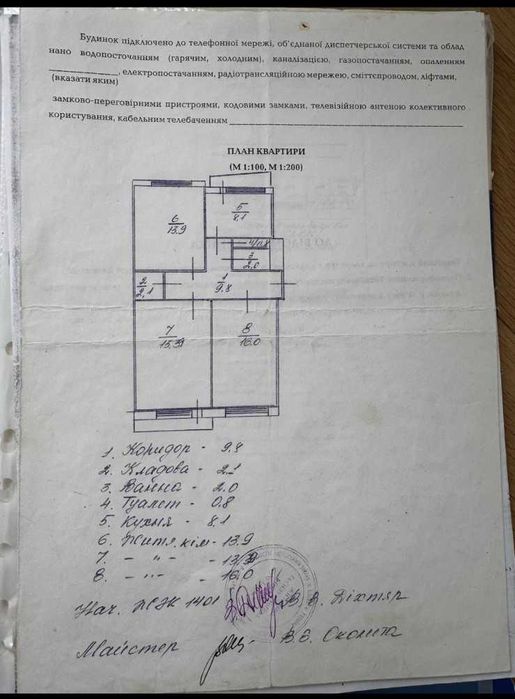 Будинок підключено до телефонної мережі, об'єднаної диспетчерської системи та облад
нано водопосточанням (гарячим, холодним), каналізацією, газопостачанням, опаленням
_______________, електропостачанням, радіотрансляційною мережею, сміттєпроводом, ліфтами,
(вказати яким)
замково-переговірними пристроями, кодовими замками, телевізійною антеною колективного
користування, кабельним телебаченням
ПЛАН КВАРТИРИ
(М 1:100, М 1:200)
6
13.9
5
8,1
4/0.8
3
2.0
2
2,1
1
9.8
7
8
16.0
1. Коридор - 9.8
2. Кладова - 2.1
3. Ванна - 2.0
4. Туалет - 0.8
5. Кухня - 8.1
6. Житл. кім - 13.9
7. - " -
8. - " - - 16.0
Нач. ЖЕК 1401 В. В. Діхтяр
Майстер В.Є. Сколита